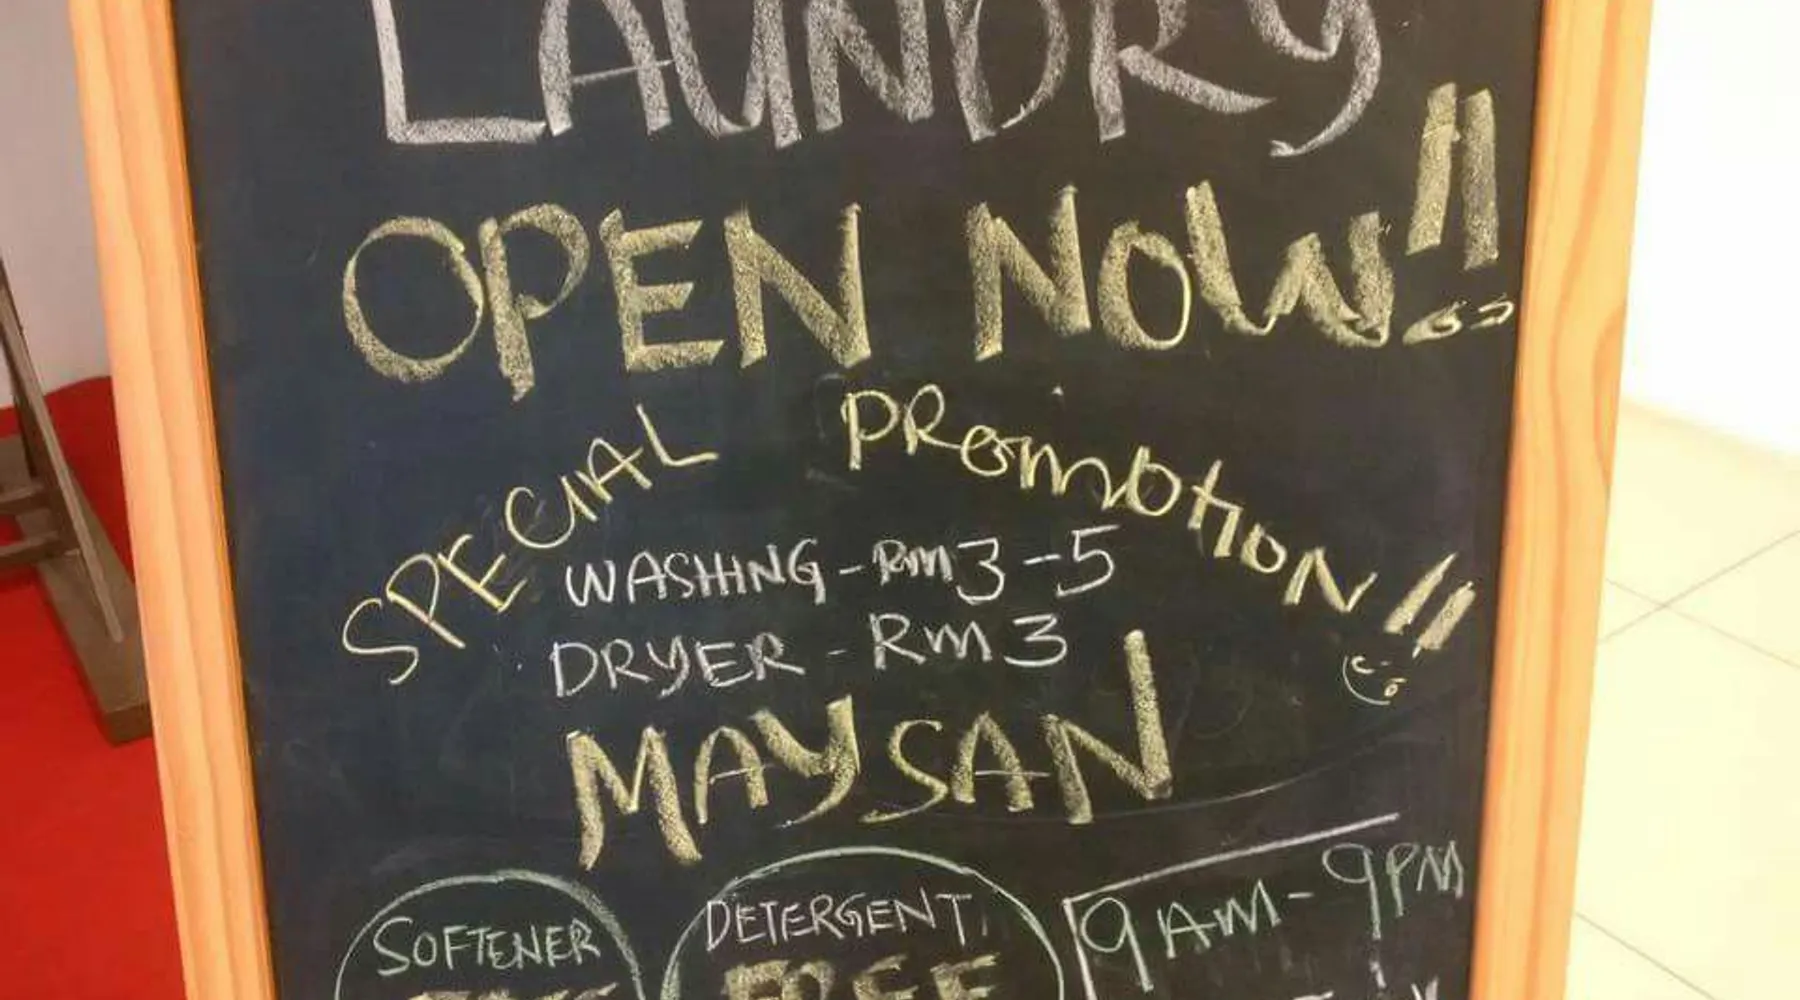 LAUNDRY
OPEN NOW!!
SPECIAL PROMOTION!!
WASHING - RM 3 - 5
DRYER - RM 3
MAYSAN
SOFTENER
DETERGENT
FREE
9 AM - 9PM